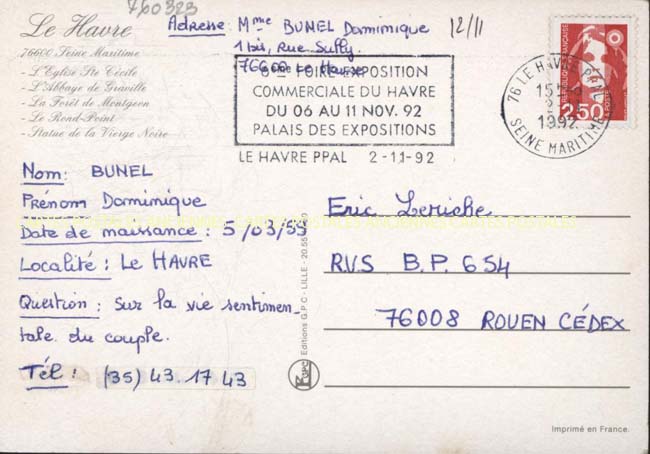 760323
Le Havre
76600 Seine Maritime
- L'Eglise Ste Cécile
- L'Abbaye de Graville
- La Forêt de Montgeon
- Le Rond-Point
- Statue de la Vierge Noire
Adresse M^me BUNEL Dominique
1 bis, Rue Sully.
76600 Le Havre
12/11
FOIRE EXPOSITION
COMMERCIALE DU HAVRE
DU 06 AU 11 NOV. 92
PALAIS DES EXPOSITIONS
LE HAVRE PPAL 2-11-92
76 LE HAVRE PPAL
15H
2
1992
SEINE MARITIME
REPUBLIQUE FRANÇAISE
2,50
Nom: BUNEL
Prénom Dominique
Date de naissance : 5/03/55
Localité : Le HAVRE
Question : Sur la vie sentimen-
tale du couple.
Tél : (35) 43.17 43
Eric Leriche
R.V.S B.P. 654
76008 ROUEN CÉDEX
CARTES POSTALES ANCIENNES CARTES POSTALES
Editions G.P.C - LILLE - 20.55
GPC
Imprimé en France.